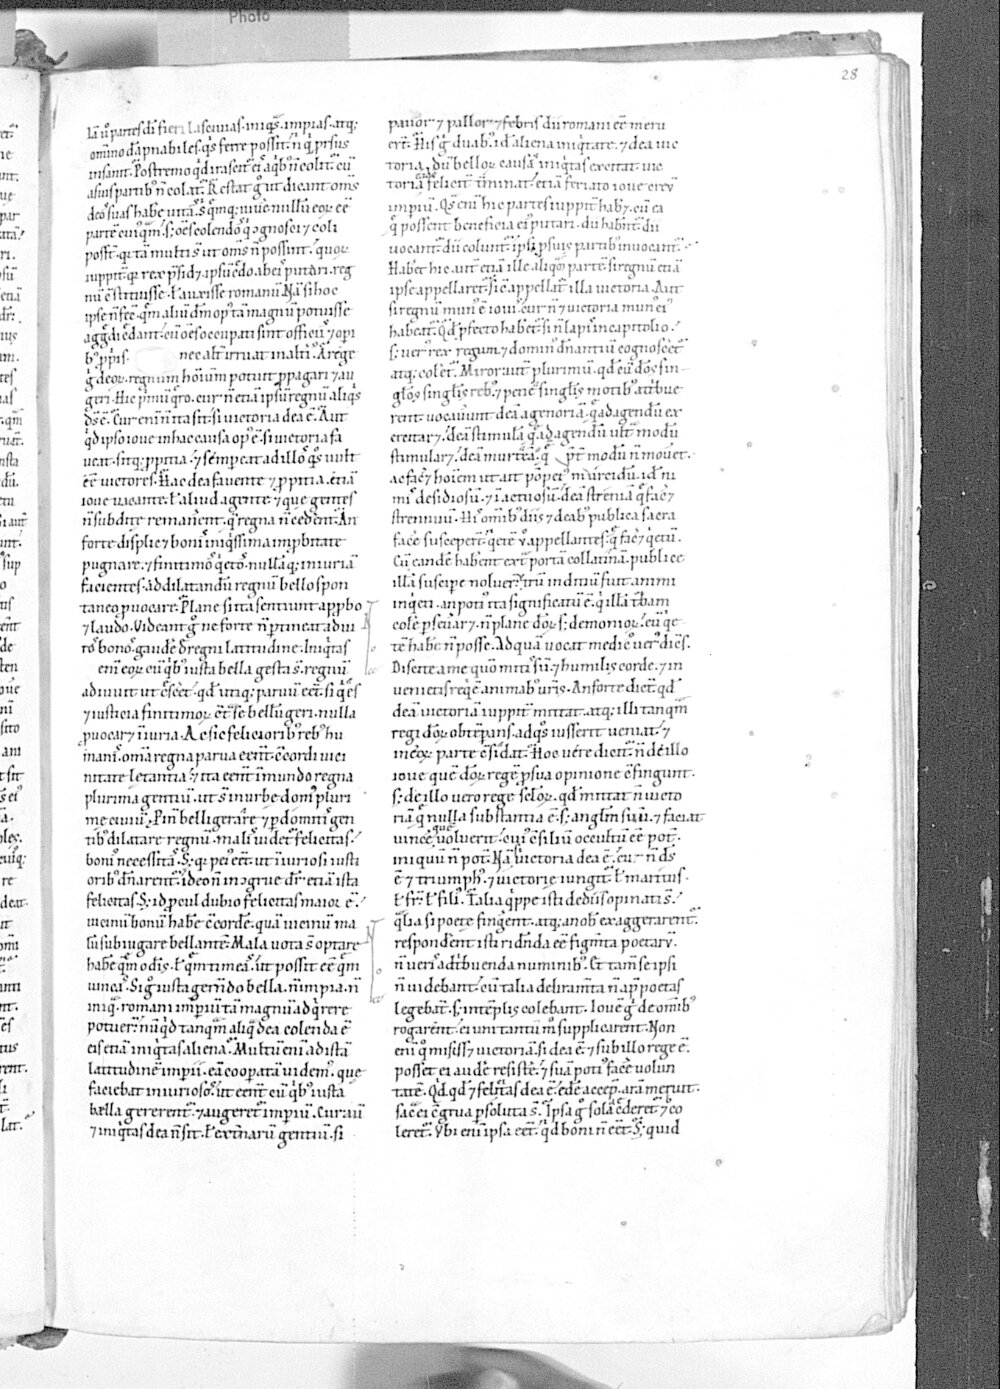 Photo
28
iā u̅ partes dī fieri lasciuas. iniqs̄. impias. atq;
omnino dāpnabiles. q̊s ferre possit. n̄ q̇ prsus
insanit. Postremo q̇d irascit̄ ei aq̇b; n̄ colit̄. cū
a suis partib; n̄ colat̄. Restat g̊ ut dicant om̄s
deos̊ suas habe uitā. s̄
partē cuiq̄m. s; oēs colendo q̊s ꝯgnosci ⁊ coli
possit. q; tā multi s̄ ut om̄s n̄ possint. quoꝝ
iuppit̄ q; rex p̄sidꝫ. ipsū c̄do ab ei putari. reg
nū c̄stituisse. ł auxisse romanū. Nā si hoc
ipse n̄ fec̄. q̄m aliū dm̄ op; tā magnū potuisse
agg̊di c̄dant. cū oēs occupati sint officiis ⁊ opi
b; p̄pis. nec alt̄ irruat in alti. A rege
g̊ deoꝝ regnum hoīum potuit ꝓpagari ⁊ au
geri. Hic p̄mū q̄ro. cur n̄ etiā ipsū regnū aliq̊s
ds̄ ē. Cur eni n̄ ita sit. si uictoria dea ē. Aut
q̇d ipso ioue in hac causa op; ē. si uictoria fa
ueat. sitq; ꝓpitia. ⁊ semp̄ eat ad illos q̊s uult
eē uictores. Hac dea fauente ⁊ ꝓpitia. etiā
ioue uacante. ł aliud agente. ⁊ que gentes
n̄ subdite remaner̄ent. q̄ regna n̄ cedent. An
forte displicꝫ bonis iniq̇ssima imp̄bitate
pugnare. ⁊ finitimos q̇etos. nullāq; iniuriā
facientes. ad dilatandū regnū bello spon
taneo ꝓuocare. Plane si ita sentiunt approbo
⁊ laudo. Videant g̊ ne forte n̄ ꝑtineat ad ui
ros bonos. gaude de regni latitudine. Iniq̇tas
enī eoꝝ cū q̇b; iusta bella gesta s̄. regnū
adiuuit ut c̄scēt. qd̄ utiq; paruū eēt. si q̇es
⁊ iusticia finitimoꝝ c̄ se bellū geri. nulla
ꝓuocarꝫ iniuria. Ac sic felicioribus reb; hu
manis. omīa regna parua eēnt. c̄cordi uici
nitate letantia. ⁊ ita eēnt in mundo regna
plurima gentiū. ut s̄ in urbe domus pluri
me ciuiū. Pin̄ belligerare ⁊ ꝑdomitis gen
tib; dilatare regnū. malis uidet̄ felicitas.
bonis necessitas. S; q; peius eēt. ut iniuriosi iusti
orib; dn̄arent̄. ideo n̄ inꝯgrue dr̄. etiā ista
felicitas. S; id pcul dubio felicitas maior ē.
uicinū bonū habe c̄cordē. quā uicinū ma
lū subiugare bellantē. Mala uota s̄ optare
habe q̄m odis. ł q̄m timeas. ut possit eē q̄m
uincas. Si g̊ iusta gerendo bella. n̄ impia. n̄
iniq̄. romani imp̄iū tā magnū adq̇rere
potuer̄. nūq̇d tanq̄m aliq̄ dea colenda ē
eis etiā iniq̇tas aliena. Multū enī ad istā
latitudinē imp̄ii. eā coop̄atā uidemus. que
faciebat iniuriosos. ut eēnt cū q̇b; iusta
bella gererent̄. ⁊ augeret̄ imp̄iū. Cur aū
⁊ iniq̇tas dea n̄ sit. ł exrnarū gentiū. si
pauor ⁊ pallor ⁊ febris dii romani eē meru
er̄t. His g̊ duab; id ē aliena iniq̇tate. ⁊ dea uic
toria. dū bellorꝝ causas iniq̇tas excitat. uic
toria eade felicit̄ t̄minat. etiā feriato ioue creū
imp̄iū. Qs enī hic partes iuppit̄ hab;. cū ea
q̄ possent beneficia eius putari. dii habent̄. dii
uocant̄. dii colunt̄. ipsi ꝓ suis partib; inuocant̄.
Haber̄ hic aut̄ etiā ille aliq̄m partē. si regnū etiā
ipse appellaret. sic ē appellat̄ illa uictoria. Aut
si regnū munus ē iouis. cur n̄ ⁊ uictoria munus eius
habeat̄. Qd̄ ꝓfecto haber̄et. si n̄ lapis in capitolio.
s; uerus rex regum. ⁊ dominus dn̄antiū cognoscēt̄
atq; coler̄et. Miror aut̄ plurimū. qd̄ cū deos sin
glos singlis reb;. ⁊ pene singlis motib; attribue
rent. uocauerunt deā agenoriā. q̄ ad agendū ex
citarꝫ. deā stimulā. q̄ ad agendū ult̄ modū
stimularꝫ. deā murteā. q̄ pt̄ modū n̄ mouet.
ac facꝫ hoiem ut ait pōpeius murcidū. id ē ni
mis desidiosū. ⁊ inactuosū. deā streniā q̄ facꝫ
strenuū. His omib; diis ⁊ deab; publica sacra
facē susceper̄. Qietē u̅ appellantes. q̄ facꝫ q̇etū.
Cū eande habent ext̄ portā collatinā. publice
illā suscipe noluer̄. Utrū indiciū fuit animi
inq̇eti. an potius ita significatū ē. q̇ illā t̄bam
cole ꝓseuarꝫ. n̄ plane deoꝝ s; demonioꝝ. eū q̇e
te habē n̄ posse. Ad quā uocat medicus uerus dices.
Discite a me quō mitis sū. ⁊ humilis corde. ⁊ in
uenietis req̇ē animab; ur̄is. An forte dicēt qd̄
deā uictoriā iuppit̄ mittat. atq; illi tanq̄m
regi deoꝝ obtep̄ans. ad q̊s iusserit ueniat. ⁊
in eoꝝ parte c̄sidat. Hoc uere dicit̄. n̄ de illo
ioue quē deoꝝ regē ꝓ sua opinione c̄fingunt.
s; de illo uero rege seloꝝ. qd̄ mittat n̄ uicto
riā q̄ nulla substantia ē. s; anglm̄ suū. ⁊ faciat
uincē que uoluerit. cuius c̄siliū occultū eē pot̄.
iniquū n̄ pot̄. Nā si uictoria dea ē. cur n̄ ds̄
ē ⁊ triumphus. ⁊ uictorie iungit̄. ł maritus.
ł fr̄. ł filius. Talia q̇ppe isti de diis opinati s̄.
q̄lia si poete fingent. atq; a nob̄ exaggerarent̄.
responder̄ent isti ridn̄da eē figm̄ta poetarꝫ.
n̄ ueris adtbuenda numinib;. Et tamen se ipsi
n̄ uidebant. cū talia deliram̄ta n̄ ap̄ poetas
legebāt. s; in templis colebant. Ioue g̊ de omib;
rogarent. ei uni tantūm̊ supplicarent. Non
enī q̊ misissꝫ uictoriā. si dea ē. ⁊ sub illo rege ē.
posset ei audē resistē. ⁊ suā potius facē uolun
tatē. Qd̄. qd̄ ⁊ felicitas dea ē. edē accep̄. arā meruit.
sac̄ ei c̄grua ꝑsoluta s̄. Ipsa g̊ sola c̄deret̄. ⁊ co
leret̄. Vbi enī ipsa eēt. q̇d boni n̄ eēt. S; quid